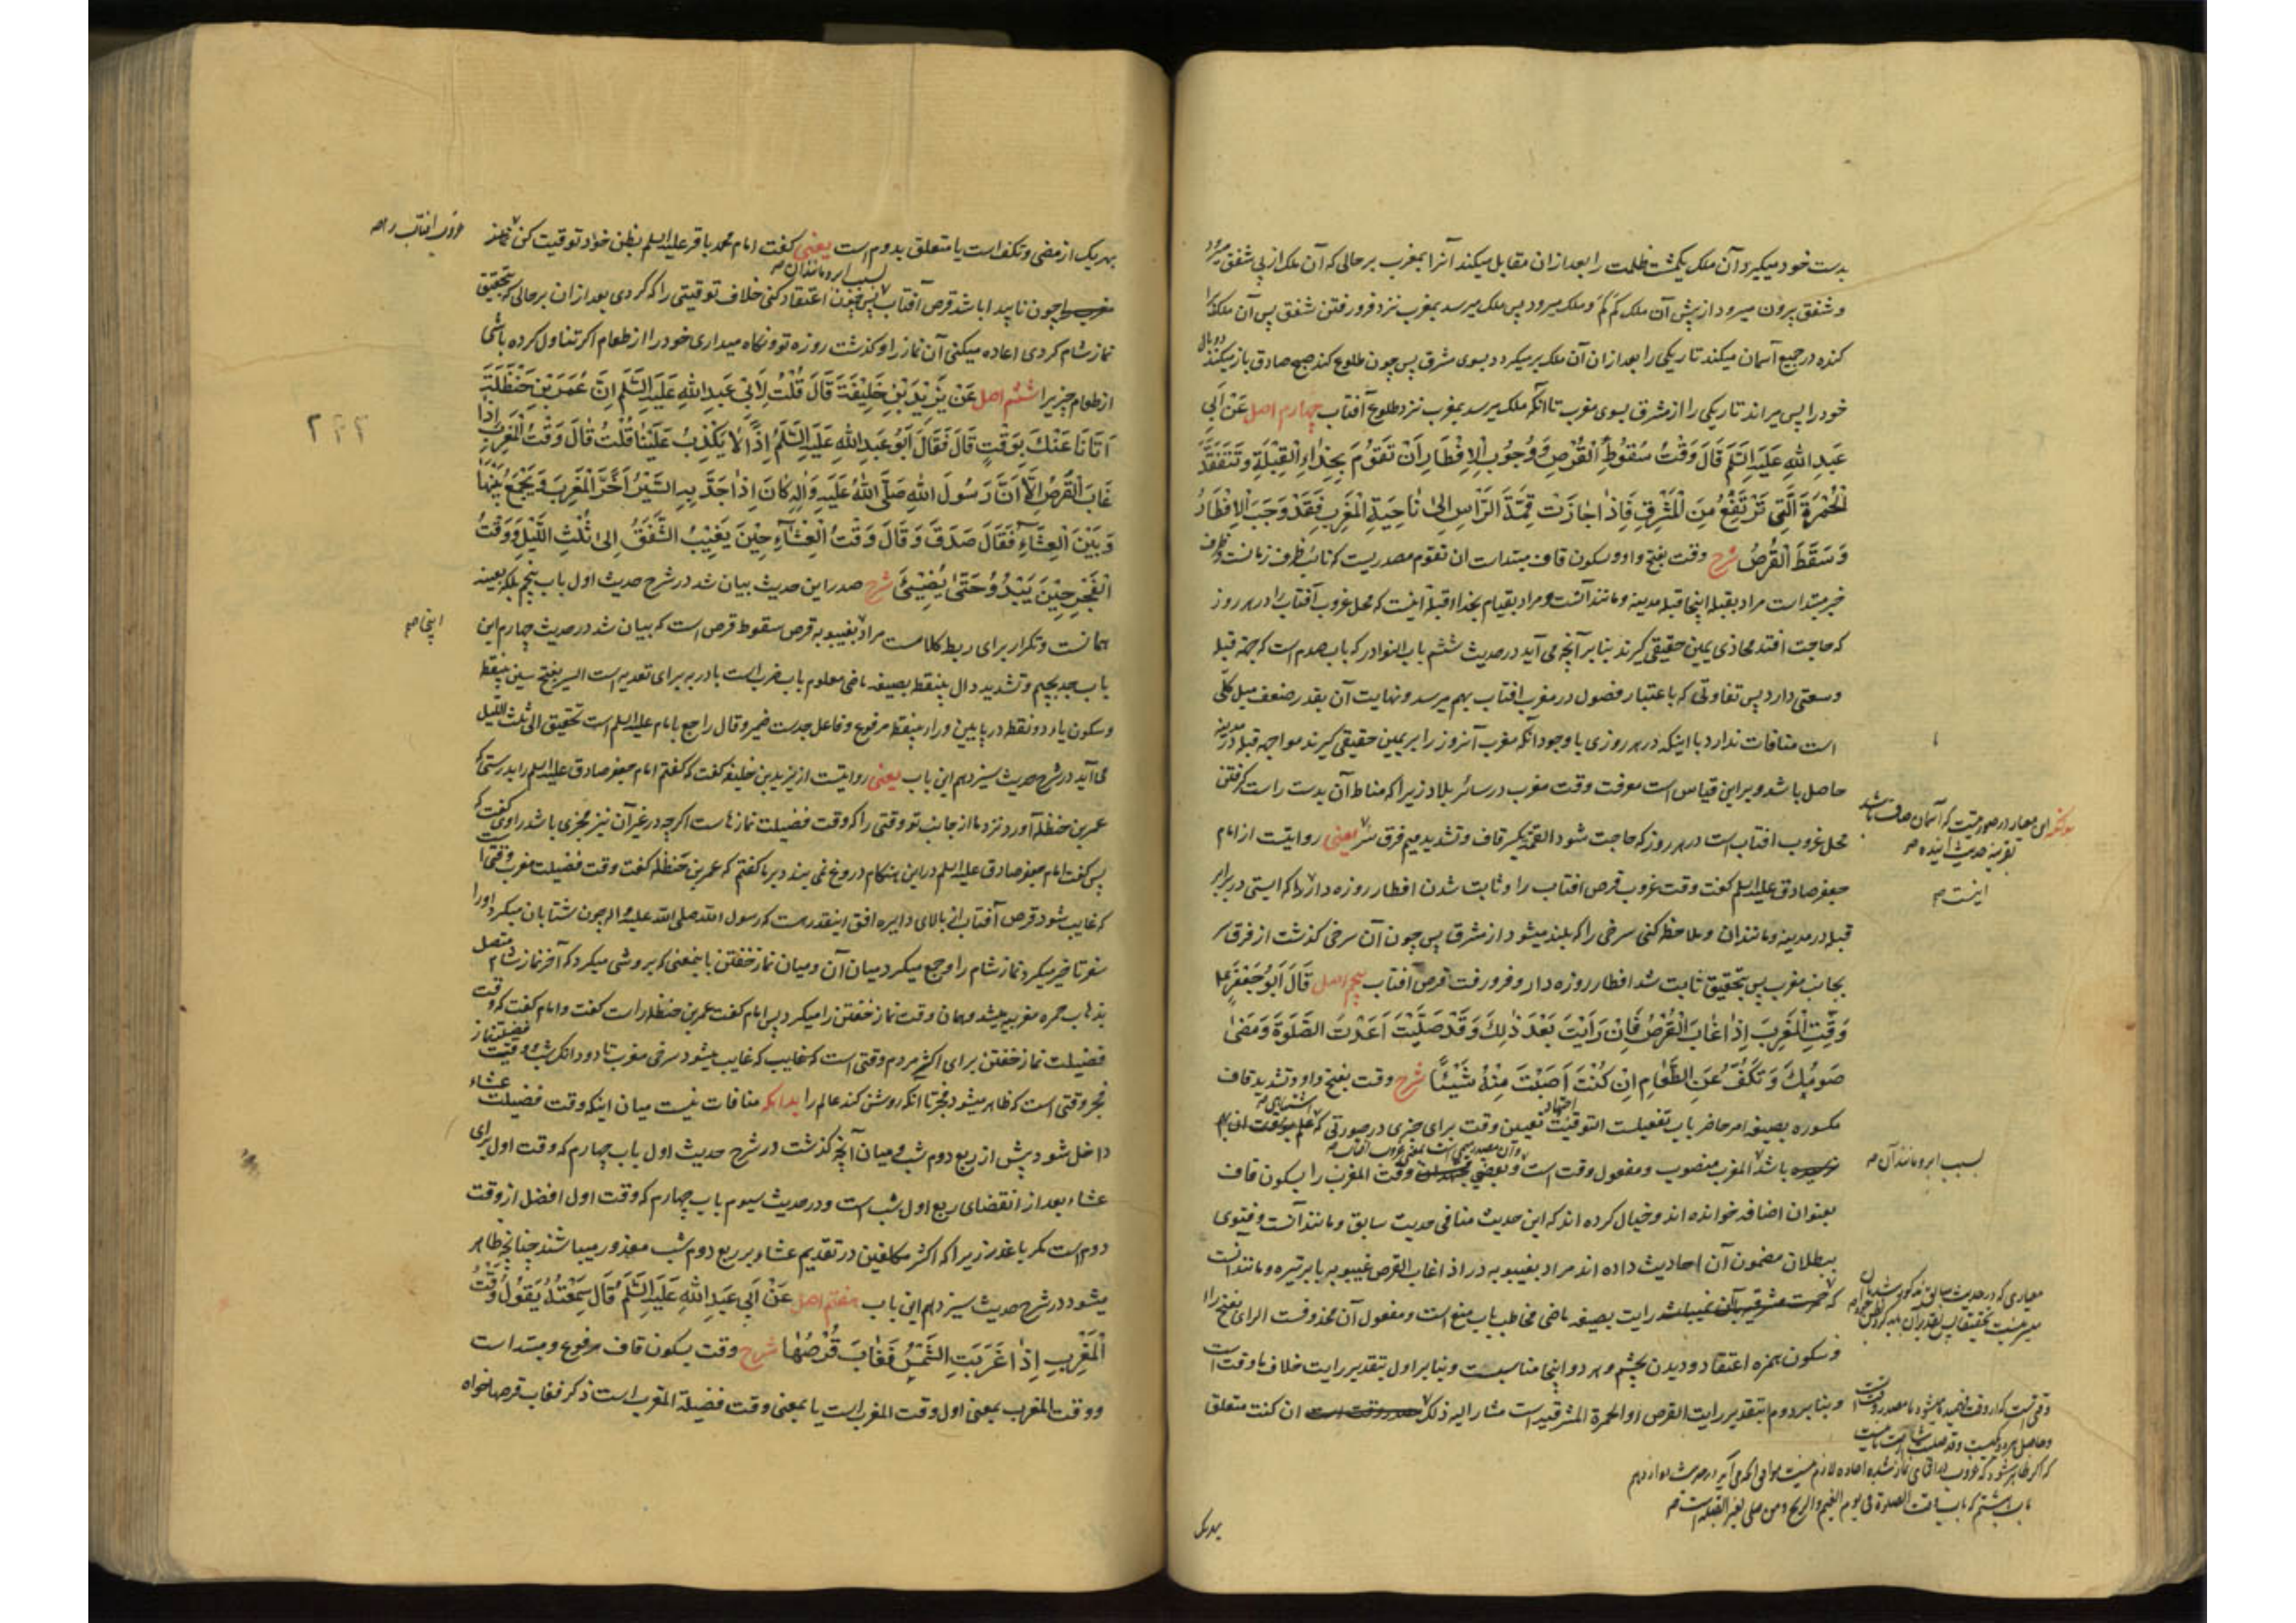 بدست خود میگیرد آن ملک یکمشت ظلمت را بعد از ان مقابل میکند آنرا بمغرب بر حالی که آن ملک از پی شفق میرود
و شفق بیرون میرود از پیش آن ملک کم کم و ملک میرود پس ملک میرسد بمغرب نزد فرو رفتن شفق پس آن ملک
کنده در جمیع آسمان میکند تاریکی را بعد از ان آن ملک بر میکردد بسوی مشرق پس چون طلوع کند صبح صادق باز میکند دو بال
خود را پس میراند تاریکی را از مشرق بسوی مغرب تا آنکه ملک میرسد بمغرب نزد طلوع آفتاب چهارم اصل عَنْ اَبِي
عَبدِ اللهِ عَلَیهِ السَّلَم قَالَ وَقْتُ سُقُوطِ الْقُرْصِ وَوُجُوبُ الِافْطَارِ اَنْ تَقُوْمَ بِحِذَاءِ الْقِبْلَةِ وَتَتَفَقَّدَ
الْحُمْرَةَ الَّتِی تَرْتَفِعُ مِنَ الْمَشْرِقِ فَاِذَا جَازَتْ قِمَّةَ الرَّاسِ اِلیٰ نَاحِیَةِ الْمَغْرِبِ فَقَدْ وَجَبَ الِافْطَارُ
وَسَقَطَ الْقُرْصُ شرح وقت بفتح واو و سکون قاف مبتداست ان تقوم مصدریست که نائب ظرف زمانست و ظرف
خبر مبتداست مراد بقبله اینجا قبله مدینه و مانند آنست و مراد بقیام بحذاء قبله اینست که محل غروب آفتاب را در هر روز
که حاجت افتد محاذی یمین حقیقی گیرند بنابر آنچه می آید در حدیث ششم باب النوادر که باب صدم است که جهة قبله
وسعتی دارد پس تفاوتی که باعتبار فصول در مغرب افتاب بهم میرسد و نهایت آن بقدر ضعف میل کلی
است منافات ندارد با اینکه در هر روزی با وجود آنکه مغرب آنروز را بر یمین حقیقی گیرند مواجهه قبله در مدینه
حاصل باشد و بر این قیاس است معرفت وقت مغرب در سائر بلاد زیرا که مناط آن بدست راست گرفتن
محل غروب افتاب است در هر روز که حاجت شود القمة بکسر قاف و تشدید میم فرق سر یعنی روایتست از امام
جعفر صادق علیه السلم گفت وقت غروب قرص افتاب را و ثابت شدن افطار روزه دار را که ایستی در برابر
قبله در مدینه و مانند ان و ملاحظه کنی سرخی را که بلند میشود از مشرق پس چون آن سرخی گذشت از فرق سر
بجانب مغرب پس بتحقیق ثابت شد افطار روزه دار و فرو رفت قرص افتاب پنجم اصل قَالَ اَبُوْ جَعْفَرٍ
وَقِّتِ الْمَغْرِبَ اِذَا غَابَ الْقُرْصُ فَاِنْ رَاَیْتَ بَعْدَ ذٰلِكَ وَقَدْ صَلَّیْتَ اَعَدْتَ الصَّلٰوةَ وَمَضیٰ
صَوْمُكَ وَتَكُفُّ عَنِ الطَّعَامِ اِنْ کُنْتَ اَصَبْتَ مِنْهُ شَیْئًا شرح وقت بفتح واو و تشدید قاف
مکسوره بصیغه امر حاضر باب تفعیلست التوقیت تعیین وقت برای چیزی در صورتی که
باشد المغرب منصوب و مفعول وقت است و بعضی وقت المغرب را بسکون قاف
بعنوان اضافه خوانده اند و خیال کرده اند که این حدیث منافی حدیث سابق و مانند آنست و فتوی
ببطلان مضمون آن احادیث داده اند مراد بغیبوبه در اذا غاب القرص غیبوبه بابر تیره و مانند انست
رایت بصیغه ماضی مخاطب باب منع است و مفعول آن محذوفست الرای بفتح راء
و سکون همزه اعتقاد و دیدن بچشم و هر دو اینجا مناسبست و بنابر اول بتقدیر رایت خلاف ما وقت است
و بنابر دوم بتقدیر رایت القرص او الحمرة المشرقیه است مشار الیه ذلک ان کنت متعلق
بسبب ابر و مانند آن
اینست
باب وقت الصلوة فی یوم الغیم و الریح و من صلی لغیر القبله است
بهریک
بهریک از مضی و تکف است یا متعلق بدوم است یعنی گفت امام محمد باقر علیه السلم بظن خود توقیت کن
چون ناپیدا باشد قرص آفتاب پس چون اعتقاد کنی خلاف توقیتی را که کردی بعد از ان بر حالی که بتحقیق
بسبب ابر و مانند ان
غروب افتاب را
نماز شام کردی اعاده میکنی آن نماز را و گذشت روزه تو و نگاه میداری خود را از طعام اگر تناول کرده باشی
از طعام چیزیرا ششم اصل عَنْ یَزِیْدَ بْنِ خَلِیْفَةَ قَالَ قُلْتُ لِاَبِی عَبدِ اللهِ عَلَیهِ السَّلَم اِنَّ عُمَرَ بْنَ حَنْظَلَةَ
اَتَانَا عَنْكَ بِوَقْتٍ قَالَ فَقَالَ اَبُوْ عَبدِ اللهِ عَلَیهِ السَّلَم اِذًا لَا یَکْذِبُ عَلَیْنَا قُلْتُ قَالَ وَقْتُ الْمَغْرِبِ اِذَا
غَابَ الْقُرْصُ اِلَّا اَنَّ رَسُولَ اللهِ صَلَّی اللهُ عَلَیهِ وَاٰلِهِ کَانَ اِذَا جَدَّ بِهِ السَّیْرُ اَخَّرَ الْمَغْرِبَ وَیَجْمَعُ بَیْنَهَا
وَبَیْنَ الْعِشَاءِ فَقَالَ صَدَقَ وَقَالَ وَقْتُ الْعِشَاءِ حِیْنَ یَغِیْبُ الشَّفَقُ اِلیٰ ثُلْثِ اللَّیْلِ وَوَقْتُ
الْفَجْرِ حِیْنَ یَبْدُوْ حَتّیٰ یُضِیْئَ شرح صدر این حدیث بیان شد در شرح حدیث اول باب پنجم بلکه بعینه
همانست و تکرار برای ربط کلامست مراد بغیبوبه قرص سقوط قرص است که بیان شد در حدیث چهارم این
اینجا
باب جد بجیم و تشدید دال بینقطه بصیغه ماضی معلوم باب ضرب است با در به برای تعدیه است السیر بفتح سین بینقطه
و سکون یاء دو نقطه در پایین و راء بینقطه مرفوع و فاعل جدست ضمیر و قال راجع بامام علیه السلم است تحقیق الی ثلث اللیل
می آید در شرح حدیث سیزدهم این باب یعنی روایتست از یزید بن خلیفه گفت که گفتم امام جعفر صادق علیه السلم را بدرستی که
عمر بن حنظله آورد نزد ما از جانب تو وقتی را که وقت فضیلت نمازهاست اگرچه در غیر آن نیز مجزی باشد راوی گفت که
پس گفت امام جعفر صادق علیه السلم در این هنگام دروغ نمی بندد بر ما گفتم که عمر بن حنظله گفت وقت فضیلت مغرب وقتی است
که غایب شود قرص آفتاب از بالای دایره افق اینقدر هست که رسول الله صلی الله علیه و اله چون شتابان میکرد او را
سفر تاخیر میکرد نماز شام را و جمع میکرد میان آن و میان نماز خفتن باینمعنی که بروشی میکرد که آخر نماز شام متصل
بذهاب حمره مغربیه میشد و همان وقت نماز خفتن را میکرد پس امام گفت عمر بن حنظله راست گفت و امام گفت که وقت
فضیلت نماز خفتن برای اکثر مردم وقتی است که غایب که غایب میشود سرخی مغرب تا دو دانک شب و وقت فضیلت نماز
فجر وقتی است که ظاهر میشود فجر تا آنکه روشن کند عالم را بدانکه منافات نیست میان اینکه وقت فضیلت عشاء
داخل شود پیش از ربع دوم شب و میان آنچه گذشت در شرح حدیث اول باب چهارم که وقت اول برای
عشاء بعد از انقضای ربع اول شب است و در حدیث سیوم باب چهارم که وقت اول افضل از وقت
دوم است مگر با عذر زیرا که اکثر مکلفین در تقدیم عشاء بر ربع دوم شب معذور میباشند چنانچه ظاهر
میشود در شرح حدیث سیزدهم این باب هفتم اصل عَنْ اَبِی عَبدِ اللهِ عَلَیهِ السَّلَم قَالَ سَمِعْتُهُ یَقُوْلُ وَقْتُ
الْمَغْرِبِ اِذَا غَرَبَتِ الشَّمْسُ فَغَابَ قُرْصُهَا شرح وقت بسکون قاف مرفوع و مبتداست
و وقت المغرب بمعنی اول وقت المغرب است یا بمعنی وقت فضیلة المغرب است ذکر فغاب قرصها خواه